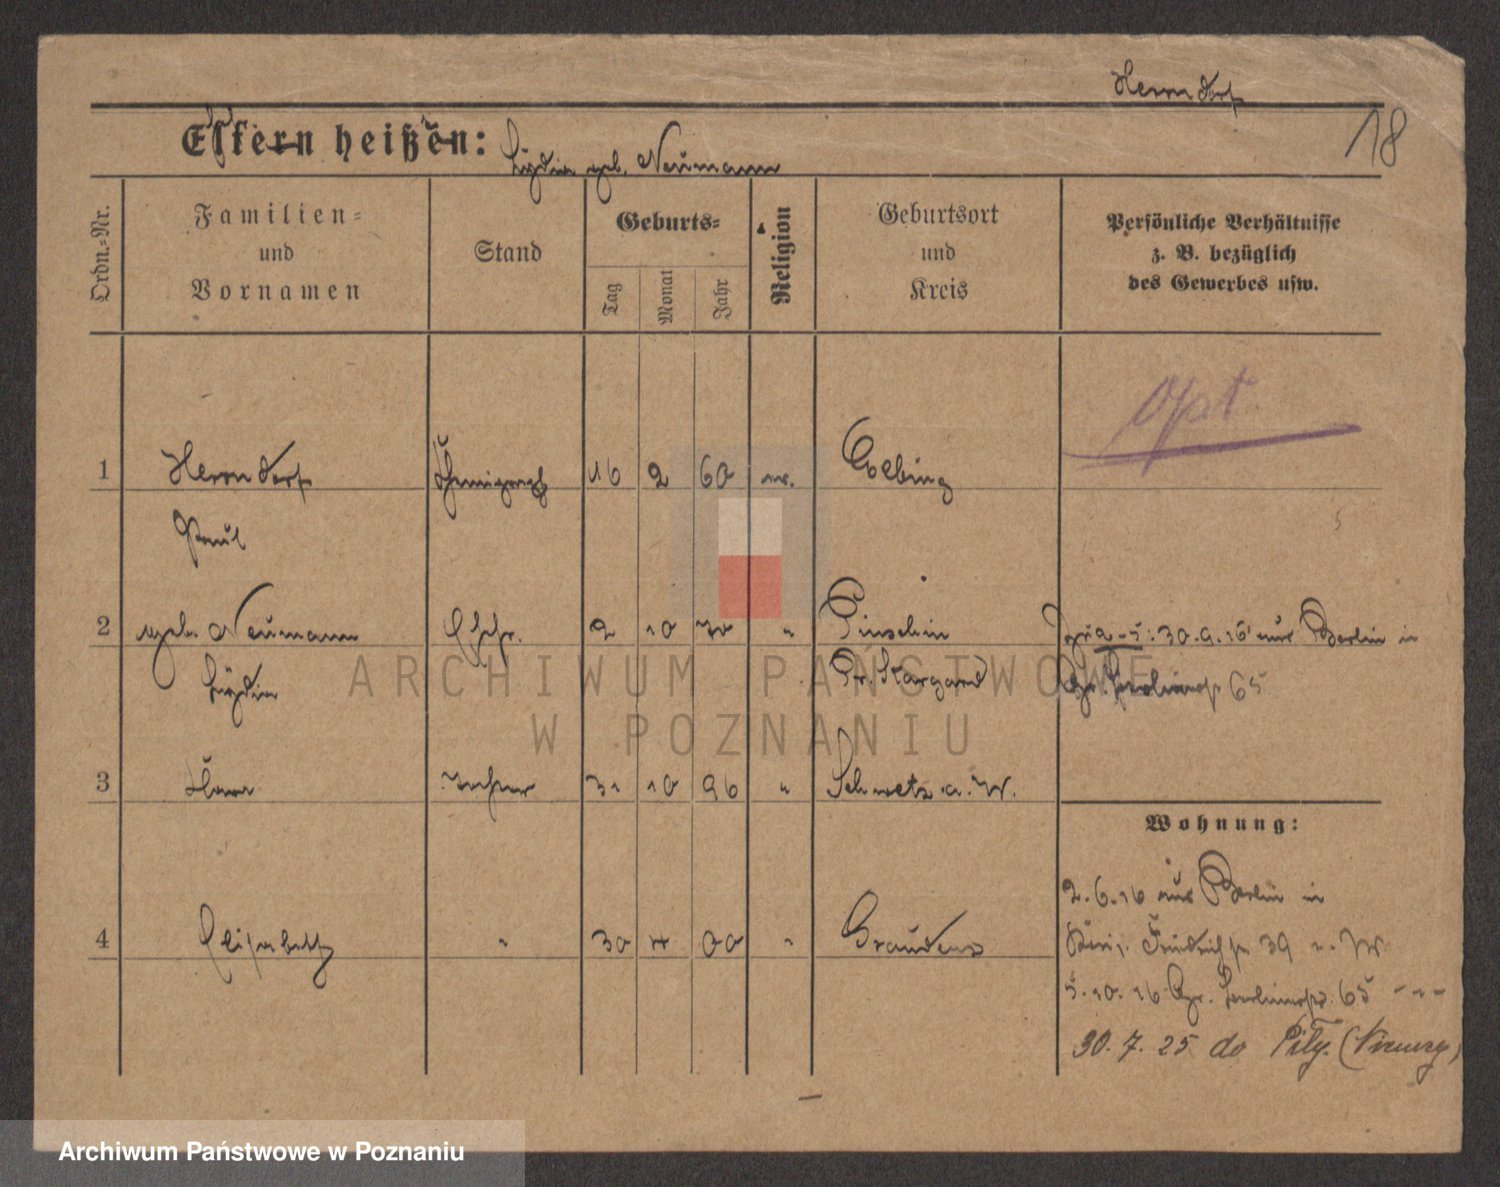 Herrndorf
18
Eltern heißen:
Lydia geb. Neumann
Ordn.-Nr.
Familien-
und
Vornamen
Stand
Geburts-
Tag
Monat
Jahr
Religion
Geburtsort
und
Kreis
Persönliche Verhältnisse
z. B. bezüglich
des Gewerbes usw.
Opt
1 Herrndorf 16 2 60 ev. Elbing
Paul
2 geb. Neumann Ehefr. 2 10 70 " Pinschin 30.9.16 aus Berlin in
Lydia Pr. Stargard Gr. Berlinerstr 65
3 Klara Tochter 31 10 96 " Schwetz a. W.
Wohnung:
2.6.16 aus Berlin in
Friedrichstr 39
4 Elisabeth " 30 4 00 " Graudenz
5.10.16 Gr. Berlinerstr. 65
30.7.25 do Piły. (Niemcy)
ARCHIWUM PAŃSTWOWE
W POZNANIU
Archiwum Państwowe w Poznaniu